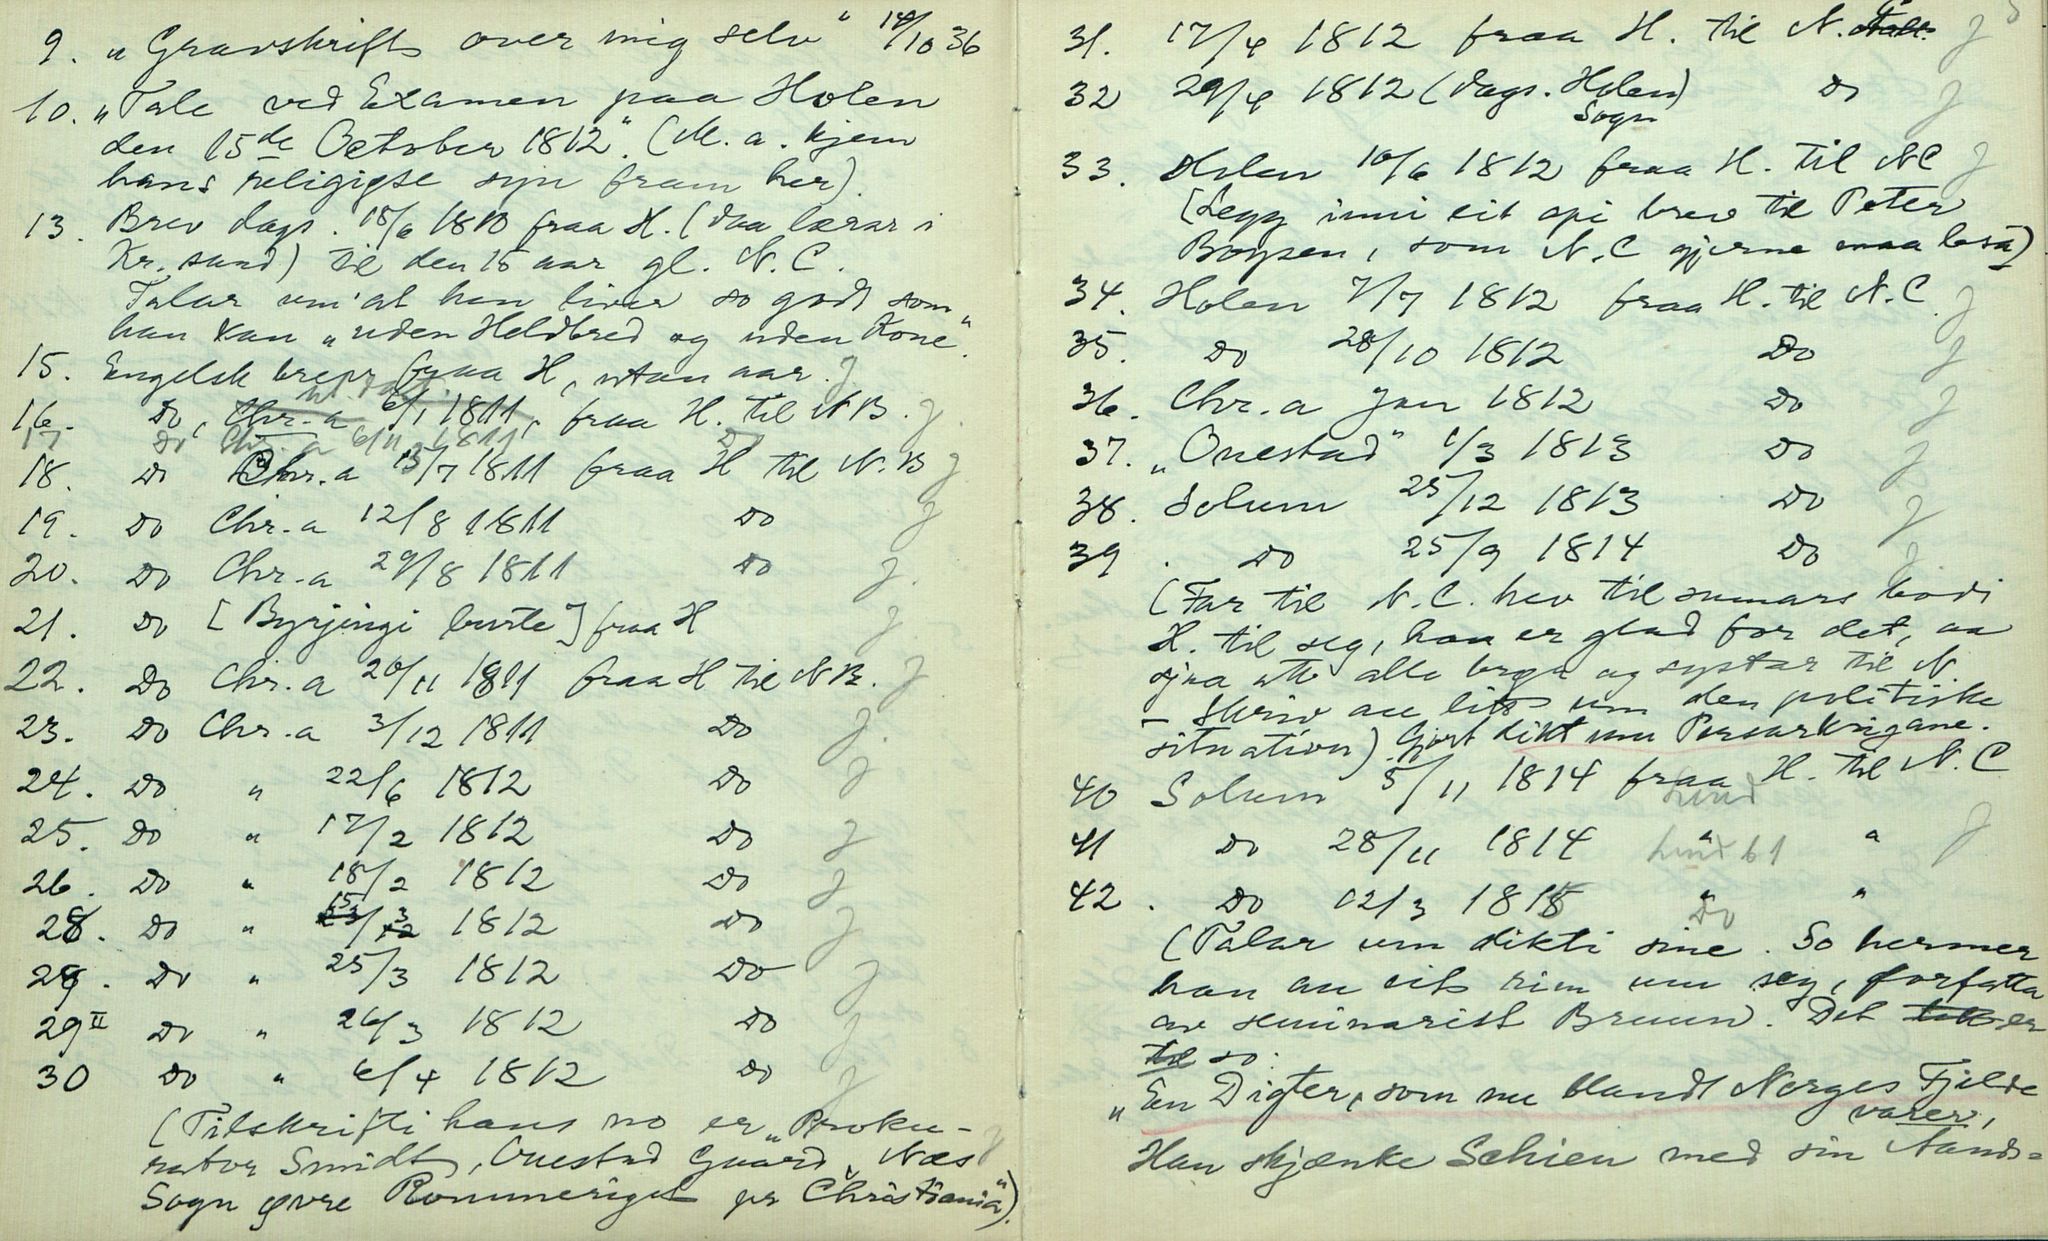 9. „Gravskrift over mig selv“ 14/10 36
10. „Tale ved Examen paa Holen
den 15de October 1812“. (M. a. kjem
hans religiøse syn fram her).
13. Brev dags. 18/6 1810 fraa H. (daa lærar i
Kr.sund) til den 15 aar gl. N.C.
Talar um at han liver so godt som
han kan „uden Helbred og uden Kone“.
15. Engelsk brev fraa H, utan aar. J
16. Do, Chr.a 6/1 1811, fraa H. til N B. J
17 Do Chr.a 6/11 1811 Do
18. Do Chr.a 15/7 1811 fraa H til N.B J
19. Do Chr.a 12/8 1811 Do J
20. Do Chr.a 29/8 1811 Do J.
21. Do [Byrjingi burte] fraa H J
22. Do Chr.a 20/11 1811 fraa H til N.B. J
23. Do Chr.a 3/12 1811 Do J.
24. Do " 22/6 1812 Do J
25. Do " 17/2 1812 Do J
26. Do " 18/2 1812 Do J
28. Do " 15/3 1812 Do J
29. Do " 25/3 1812 Do J
29 II Do " 26/3 1812 Do J
30 Do " 6/4 1812 Do J
(Tilskrifti hans no er „Proku-
rator Smidt, Onestad Gaard, Næs
Sogn øvre Rommeriget pr Christiania“).
31. 17/4 1812 fraa H. til N. C J
32 29/4 1812 (dags. Holen Sogn) Do J
33. Holen 10/6 1812 fraa H. til N C J
(Legg inni eit opi brev til Peter
Boysen, som N.C gjerne maa lesa)
34. Holen 7/7 1812 fraa H. til N.C. J
35. Do 28/10 1812 Do J
36. Chr.a Jan 1812 Do J
37. „Onestad“ 1/3 1813 Do J
38. Solum 25/12 1813 Do J
39. Do 25/9 1814 Do J
(Far til N.C. hev til sumars bodi
H. til seg, han er glad for det, aa
sjaa atte alle brør og systar til N.
– Skriv au litt um den politiske
situation). Gjort dikt um Persarkrigane.
40 Solum 5/11 1814 fraa H. til N.C
41 Do 28/11 1814 " " J
42. Do 12/3 1815 " "
Do
(Talar um dikti sine. So hermer
han au eit rim um seg, forfatta
av seminarist Bruun. Det er
so:
„En Digter, som nu blandt Norges Fjelde
varer,
Han skjænke Schien med sin Aands=